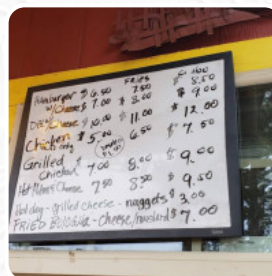 FRIES
Hamburger $6.50 7.50 8.50
w/Cheese $7.00 $8.00 $9.00
Dbl/Cheese $10.00 $11.00 $12.00
Chicken $5.00 6.50 $7.50
only
Grilled
Chicken $7.00 8.00 $9.00
Cheese 7.50 8.50 $9.50
Hot dog - grilled cheese - nuggets $3.00
FRIED BOLOGNA - cheese/mustard $7.00